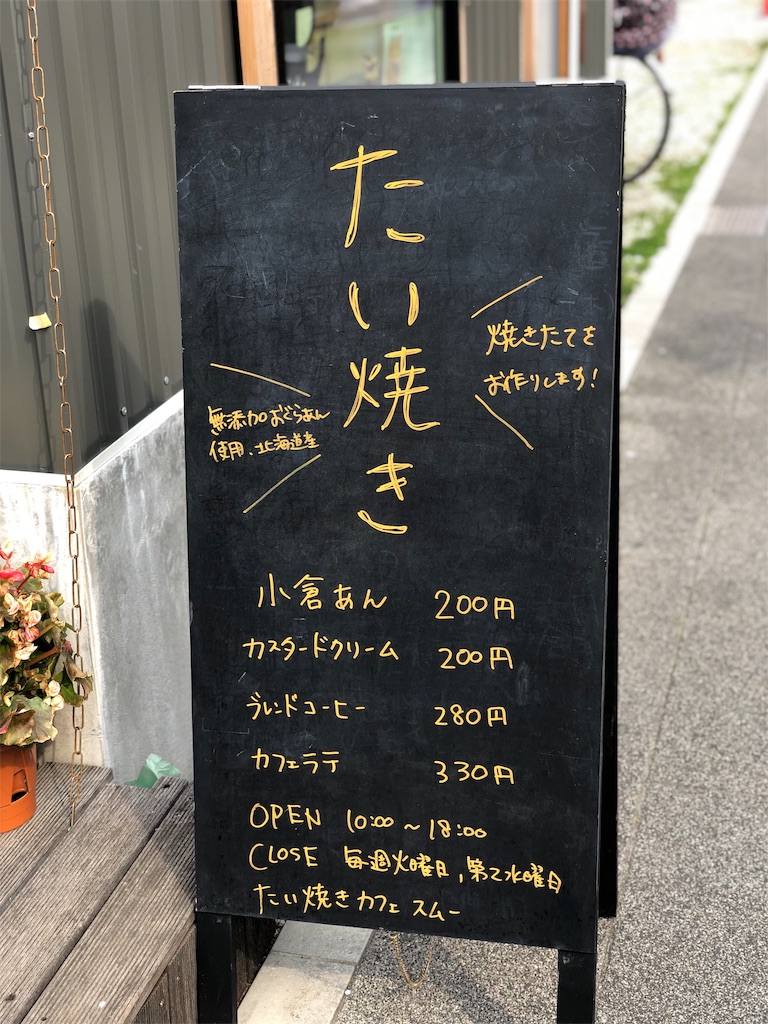 たい焼き
焼きたてを
お作りします!
無添加おぐらあん
使用、北海道産
小倉あん 200円
カスタードクリーム 200円
ブレンドコーヒー 280円
カフェラテ 330円
OPEN 10:00～18:00
CLOSE 毎週火曜日,第2水曜日
たい焼きカフェ スムー